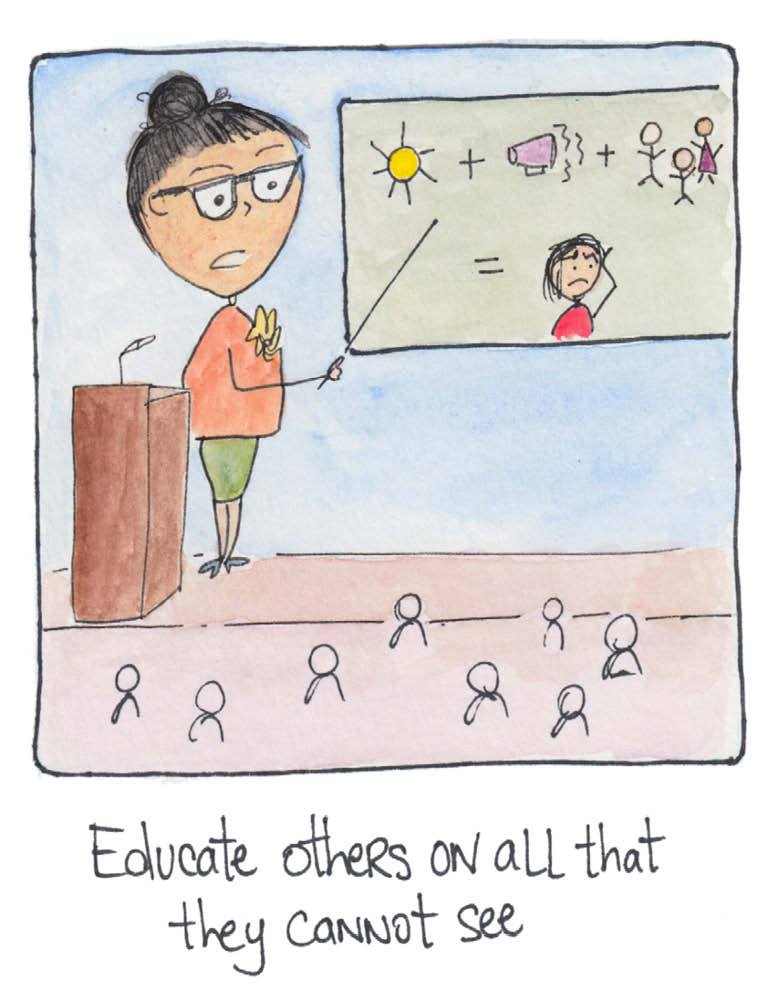 + +
=
Educate others on all that
they cannot see